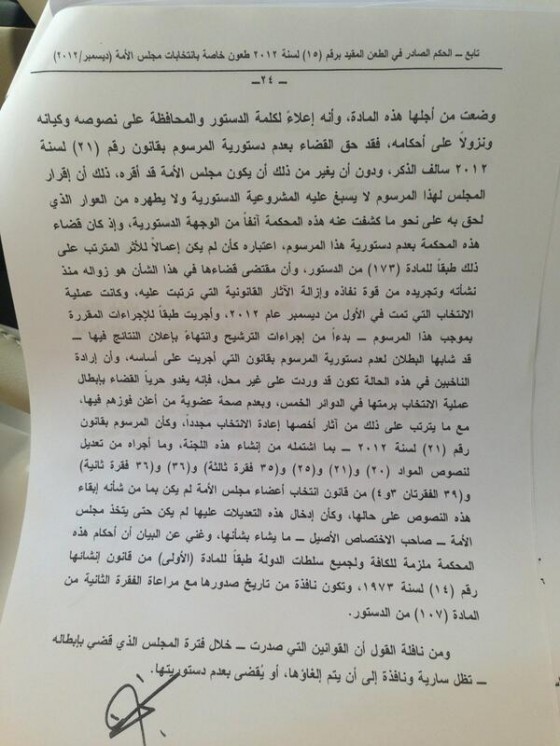 تابع ــ الحكم الصادر في الطعن المقيد برقم (١٥) لسنة ٢٠١٢ طعون خاصة بانتخابات مجلس الأمة (ديسمبر/٢٠١٢)
ــ ٢٤ ــ
وضعت من أجلها هذه المادة، وأنه إعلاءً لكلمة الدستور والمحافظة على نصوصه وكيانه
ونزولاً على أحكامه، فقد حق القضاء بعدم دستورية المرسوم بقانون رقم (٢١) لسنة
٢٠١٢ سالف الذكر، ودون أن يغير من ذلك أن يكون مجلس الأمة قد أقره، ذلك أن إقرار
المجلس لهذا المرسوم لا يسبغ عليه المشروعية الدستورية ولا يطهره من العوار الذي
لحق به على نحو ما كشفت عنه هذه المحكمة آنفاً من الوجهة الدستورية، وإذ كان قضاء
هذه المحكمة بعدم دستورية هذا المرسوم، اعتباره كأن لم يكن إعمالاً للأثر المترتب على
ذلك طبقاً للمادة (١٧٣) من الدستور، وأن مقتضى قضاءها في هذا الشأن هو زواله منذ
نشأته وتجريده من قوة نفاذه وإزالة الآثار القانونية التي ترتبت عليه، وكانت عملية
الانتخاب التي تمت في الأول من ديسمبر عام ٢٠١٢، وأجريت طبقاً للإجراءات المقررة
بموجب هذا المرسوم ــ بدءاً من إجراءات الترشيح وانتهاءً بإعلان النتائج فيها ــ
قد شابها البطلان لعدم دستورية المرسوم بقانون التي أجريت على أساسه، وأن إرادة
الناخبين في هذه الحالة تكون قد وردت على غير محل، فإنه يغدو حرياً القضاء بإبطال
عملية الانتخاب برمتها في الدوائر الخمس، وبعدم صحة عضوية من أعلن فوزهم فيها،
مع ما يترتب على ذلك من آثار أخصها إعادة الانتخاب مجدداً، وكأن المرسوم بقانون
رقم (٢١) لسنة ٢٠١٢ ــ بما اشتمله من إنشاء هذه اللجنة، وما أجراه من تعديل
لنصوص المواد (٢٠) و(٢١) و(٢٥) و(٣٥ فقرة ثالثة) و(٣٦) و(٣٦ فقرة ثانية)
و(٣٩ الفقرتان ٣و٤) من قانون انتخاب أعضاء مجلس الأمة لم يكن بما من شأنه إبقاء
هذه النصوص على حالها، وكأن إدخال هذه التعديلات عليها لم يكن حتى يتخذ مجلس
الأمة ــ صاحب الاختصاص الأصيل ــ ما يشاء بشأنها، وغني عن البيان أن أحكام هذه
المحكمة ملزمة للكافة ولجميع سلطات الدولة طبقاً للمادة (الأولى) من قانون إنشائها
رقم (١٤) لسنة ١٩٧٣، وتكون نافذة من تاريخ صدورها مع مراعاة الفقرة الثانية من
المادة (١٠٧) من الدستور.
ومن نافلة القول أن القوانين التي صدرت ــ خلال فترة المجلس الذي قضي بإبطاله
ــ تظل سارية ونافذة إلى أن يتم إلغاؤها، أو يُقضى بعدم دستوريتها.